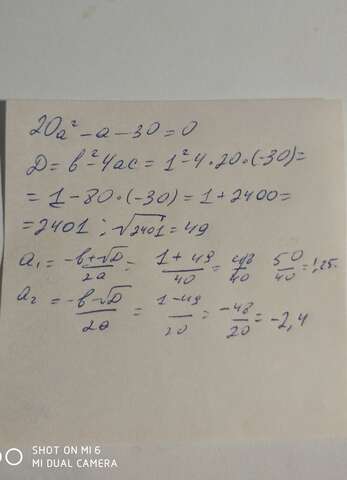 20a² - a - 30 = 0
D = b² - 4ac = 1² - 4·20·(-30) =
= 1 - 80·(-30) = 1 + 2400 =
= 2401; √2401 = 49
a₁ = -b+√D/2a = 1+49/40 = 48/40 50/40 = 1,25.
a₂ = -b-√D/2a = 1-49/20 = -48/20 = -2,4
SHOT ON MI 6
MI DUAL CAMERA